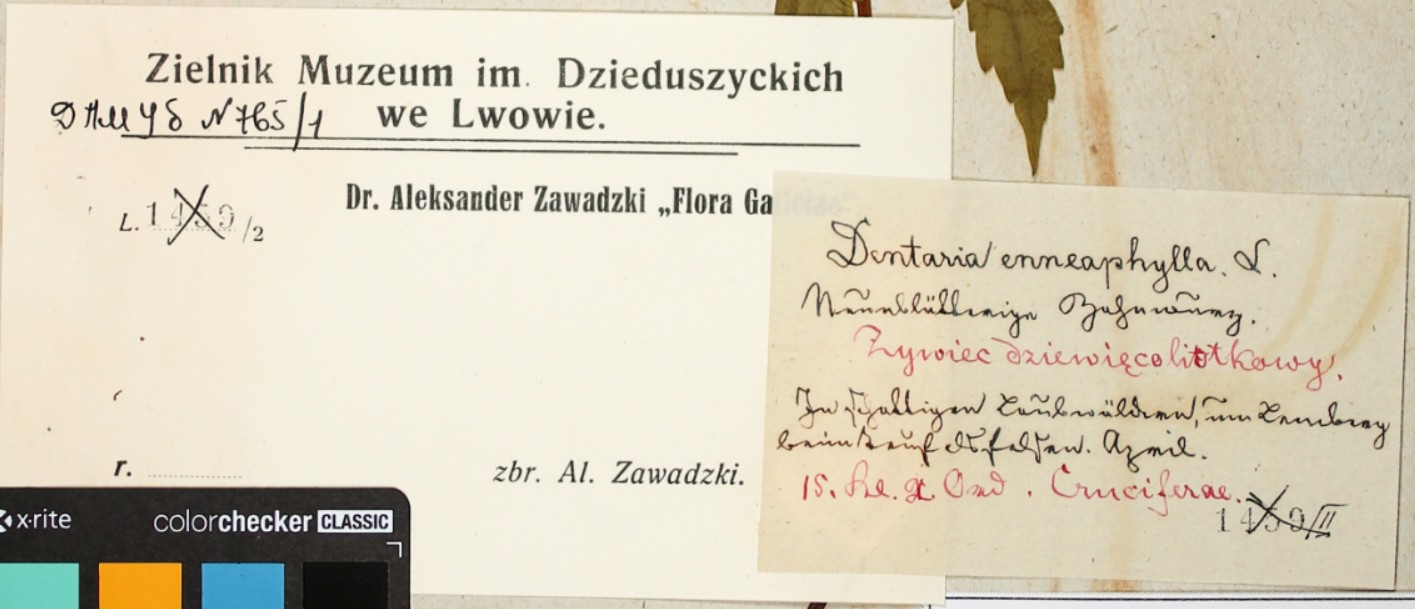 Zielnik Muzeum im. Dzieduszyckich
we Lwowie.
N 765/1
L. 1459/2
Dr. Aleksander Zawadzki „Flora Ga
r.
zbr. Al. Zawadzki.
Dentaria enneaphylla. L.
Neunblättrige Zahnwurz.
Żywiec dziewięcolistkowy.
In schattigen Laubwäldern, um Lemberg
beim Teufelsfelsen. April.
15. Kl. Ord. Cruciferae.
1459/II
x-rite
colorchecker CLASSIC